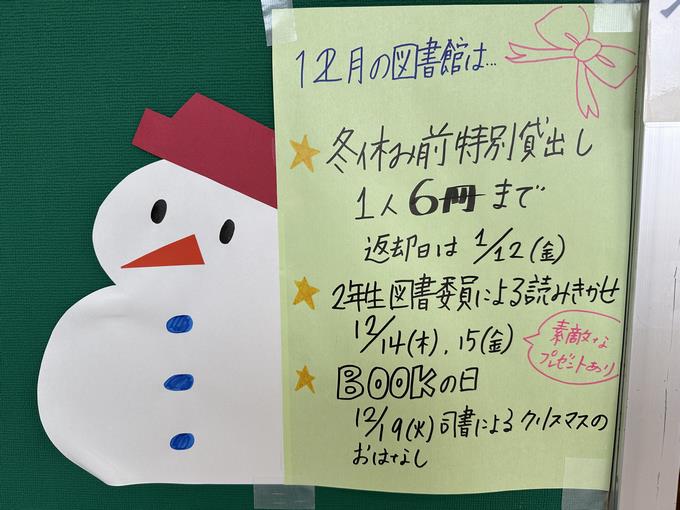 12月の図書館は…
冬休み前特別貸出し
1人6冊まで
返却日は 1/12(金)
2年生図書委員による読みきかせ
12/14(木), 15(金)
素敵な
プレゼントあり
BOOKの日
12/19(火)司書によるクリスマスの
おはなし